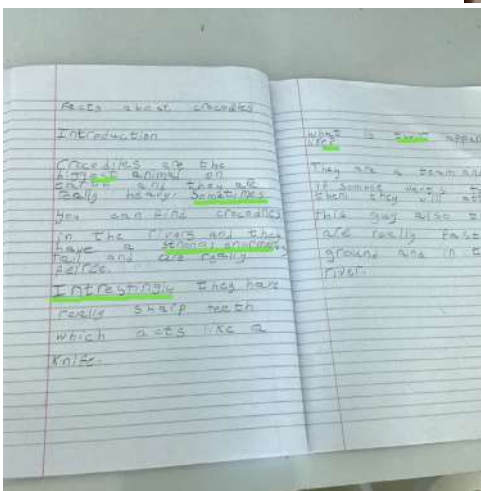 Facts about crocodiles
Introduction
Crocodiles are the
biggest animal on
earth and they are
really heavy. Sometimes
you can find crocodiles
in the rivers and they
have a strong, enormous
tail and are really
Intrestingly they have
really sharp teeth
which acts like a
Knife.
What is their appen
like?
They are a team and
if someone wants t
them they will att
this guy also t
are really fast
ground and in t
river.